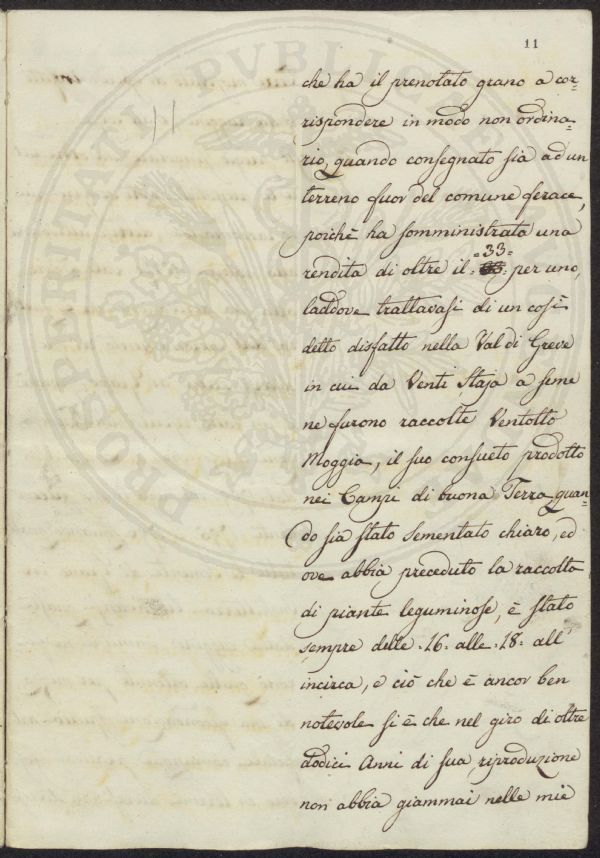 11
11
PROSPERITATI PVBLICAE
che ha il prenotato grano a cor=
rispondere in modo non ordina=
rio, quando consegnato sia ad un
terreno fuor del comune ferace,
poichè ha somministrata una
=33=
rendita di oltre il per uno,
laddove trattavasi di un così
detto disfatto nella Val di Greve
in cui da Venti Staja a seme
ne furono raccolte Ventotto
Moggia, il suo consueto prodotto
nei Campi di buona Terra quan=
do sia stato sementato chiaro, ed
ove abbia preceduto la raccolta
di piante leguminose, è stato
sempre delle .16. alle .18. all'
incirca, e ciò che è ancor ben
notevole si è che nel giro di oltre
dodici Anni di sua riproduzione
non abbia giammai nelle mie